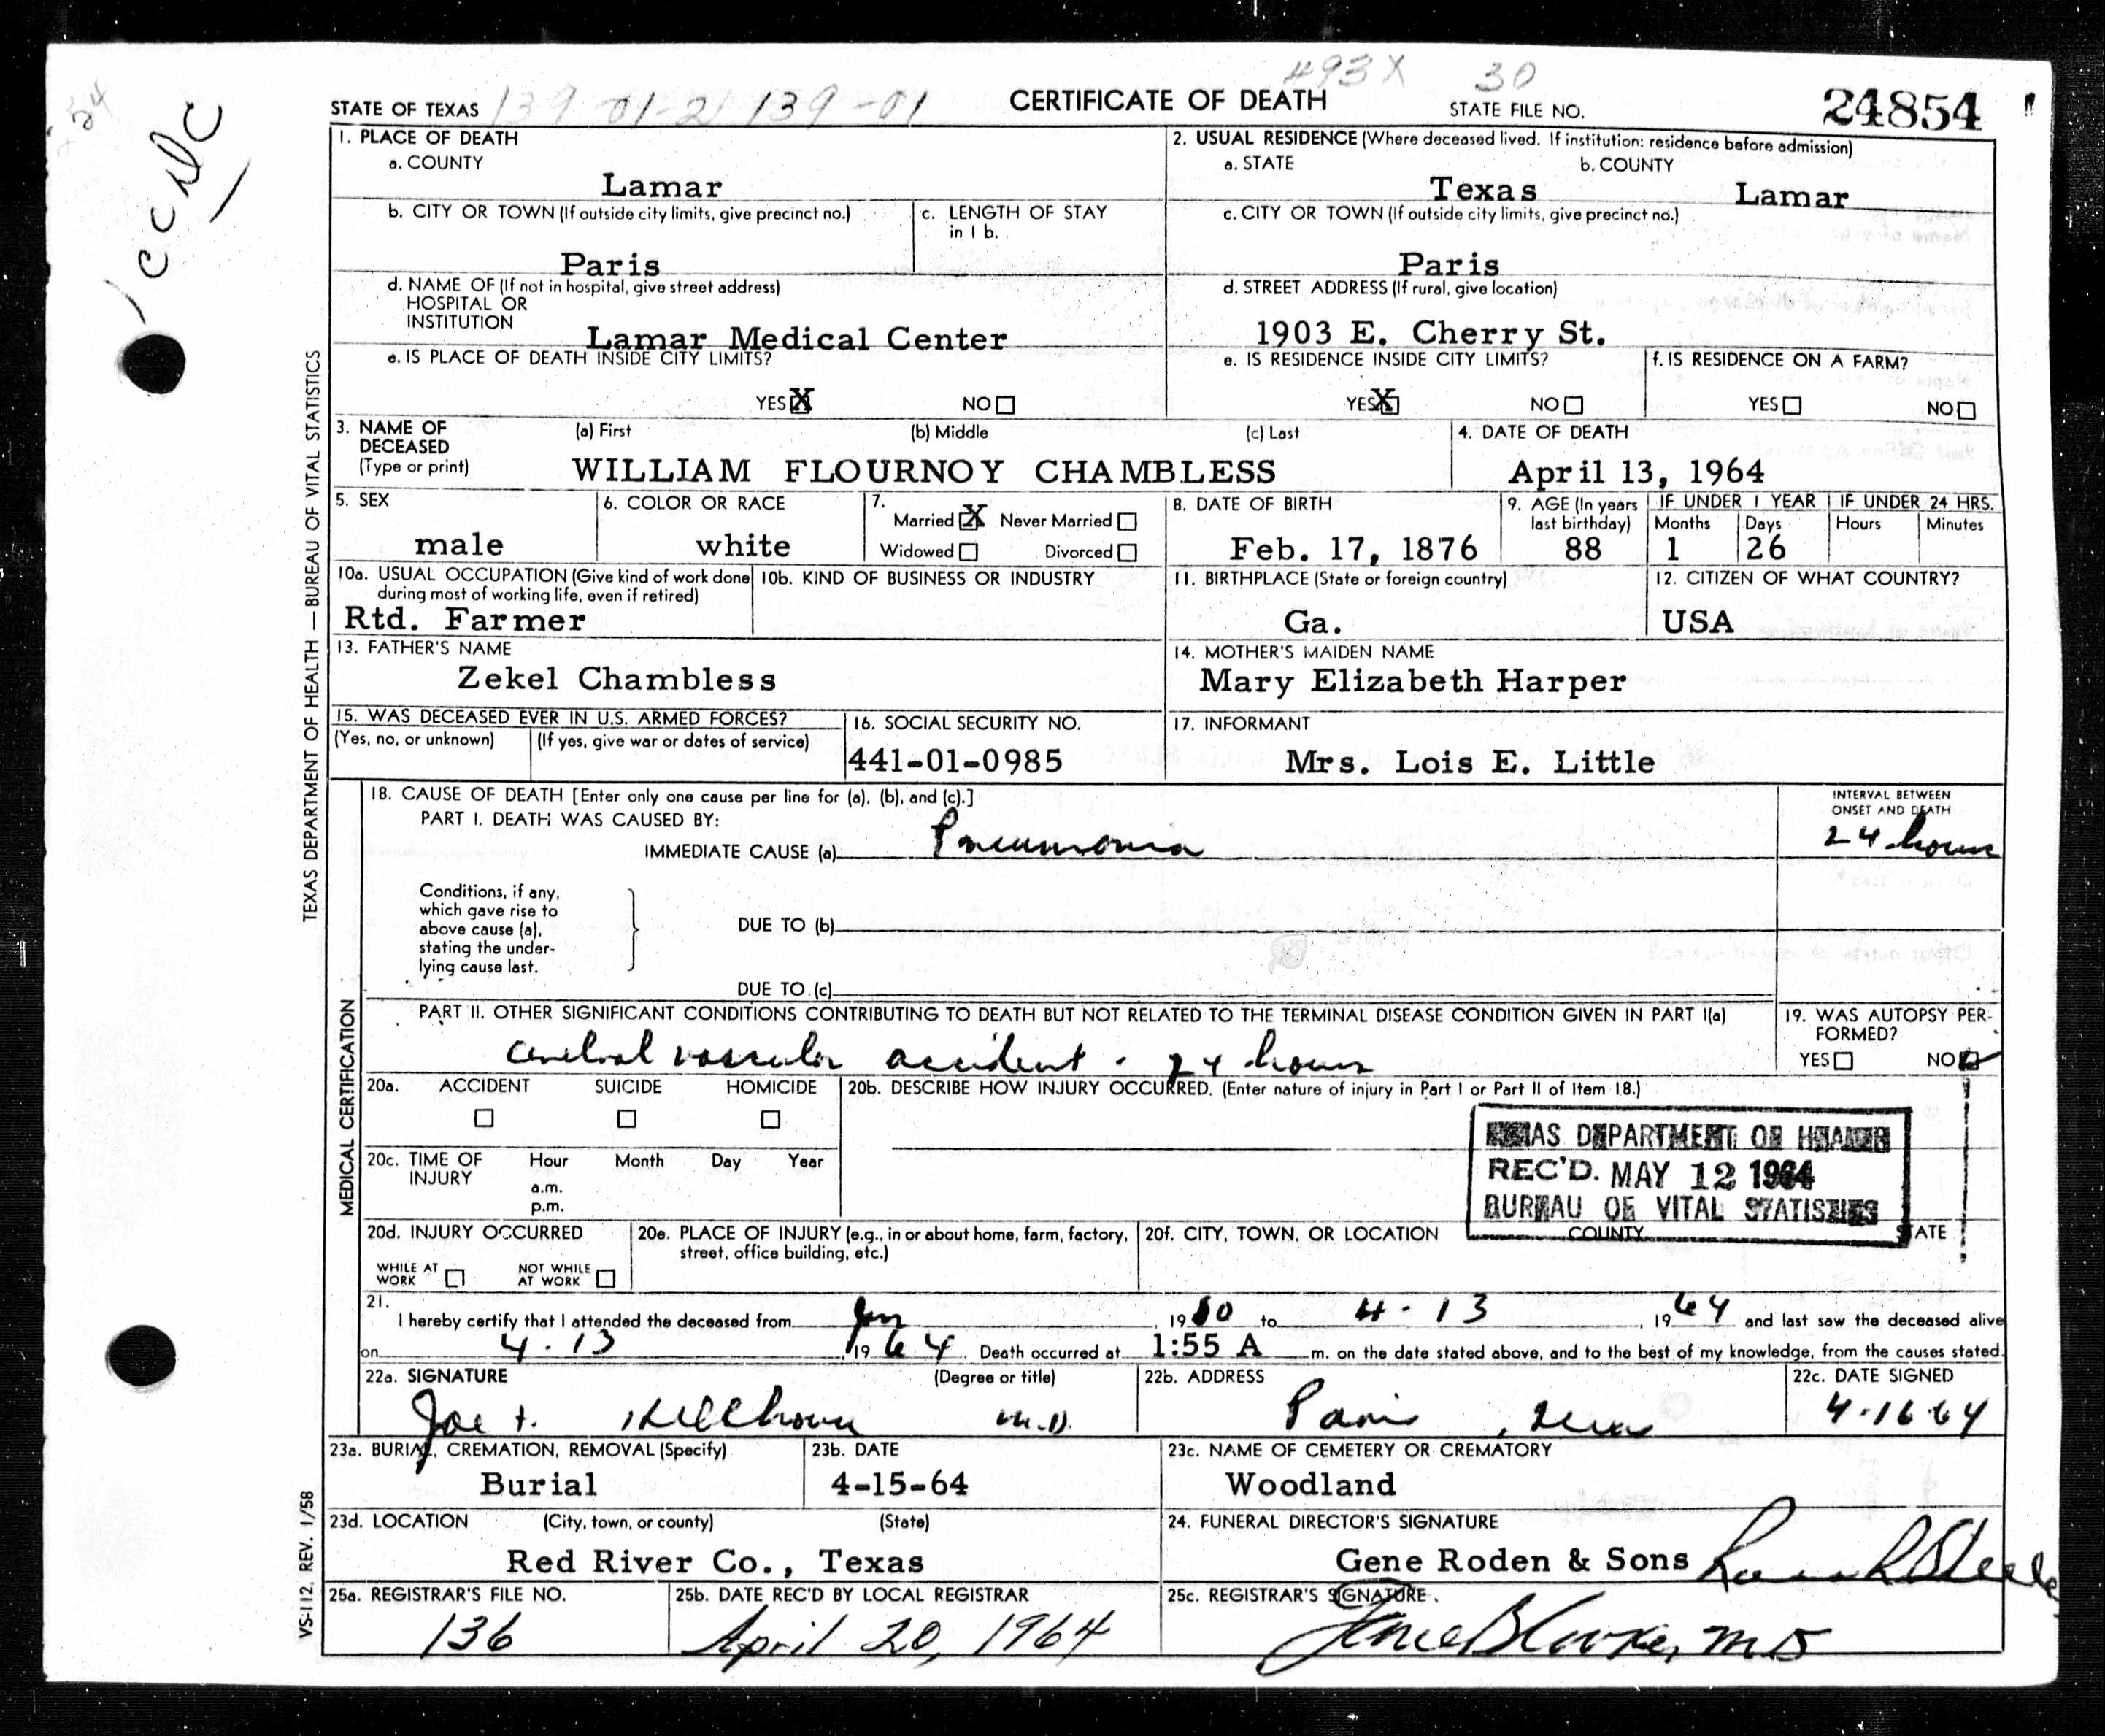 493X 30
STATE OF TEXAS 139 01-2 139-01 CERTIFICATE OF DEATH STATE FILE NO. 24854
1. PLACE OF DEATH
a. COUNTY
Lamar
2. USUAL RESIDENCE (Where deceased lived. If institution: residence before admission)
a. STATE b. COUNTY
Texas Lamar
b. CITY OR TOWN (If outside city limits, give precinct no.)
Paris
c. LENGTH OF STAY
in 1 b.
c. CITY OR TOWN (If outside city limits, give precinct no.)
Paris
d. NAME OF (If not in hospital, give street address)
HOSPITAL OR
INSTITUTION
Lamar Medical Center
d. STREET ADDRESS (If rural, give location)
1903 E. Cherry St.
e. IS PLACE OF DEATH INSIDE CITY LIMITS?
YES X NO
e. IS RESIDENCE INSIDE CITY LIMITS?
YES X NO
f. IS RESIDENCE ON A FARM?
YES NO
3. NAME OF
DECEASED
(Type or print)
(a) First (b) Middle (c) Last
WILLIAM FLOURNOY CHAMBLESS
4. DATE OF DEATH
April 13, 1964
5. SEX
male
6. COLOR OR RACE
white
7.
Married X Never Married
Widowed Divorced
8. DATE OF BIRTH
Feb. 17, 1876
9. AGE (In years
last birthday)
88
IF UNDER 1 YEAR IF UNDER 24 HRS.
Months Days Hours Minutes
1 26
10a. USUAL OCCUPATION (Give kind of work done
during most of working life, even if retired)
Rtd. Farmer
10b. KIND OF BUSINESS OR INDUSTRY
11. BIRTHPLACE (State or foreign country)
Ga.
12. CITIZEN OF WHAT COUNTRY?
USA
13. FATHER'S NAME
Zekel Chambless
14. MOTHER'S MAIDEN NAME
Mary Elizabeth Harper
15. WAS DECEASED EVER IN U.S. ARMED FORCES?
(Yes, no, or unknown) (If yes, give war or dates of service)
16. SOCIAL SECURITY NO.
441-01-0985
17. INFORMANT
Mrs. Lois E. Little
18. CAUSE OF DEATH [Enter only one cause per line for (a), (b), and (c).]
PART I. DEATH WAS CAUSED BY:
IMMEDIATE CAUSE (a) Pneumonia
INTERVAL BETWEEN
ONSET AND DEATH
24 hours
Conditions, if any,
which gave rise to
above cause (a),
stating the under-
lying cause last.
DUE TO (b)
DUE TO (c)
PART II. OTHER SIGNIFICANT CONDITIONS CONTRIBUTING TO DEATH BUT NOT RELATED TO THE TERMINAL DISEASE CONDITION GIVEN IN PART I(a)
Cerebral vascular accident - 24 hours
19. WAS AUTOPSY PER-
FORMED?
YES NO
20a. ACCIDENT SUICIDE HOMICIDE
20b. DESCRIBE HOW INJURY OCCURRED. (Enter nature of injury in Part I or Part II of Item 18.)
TEXAS DEPARTMENT OF HEALTH
REC'D. MAY 12 1964
BUREAU OF VITAL STATISTICS
20c. TIME OF
INJURY
Hour Month Day Year
a.m.
p.m.
20d. INJURY OCCURRED
WHILE AT
WORK
NOT WHILE
AT WORK
20e. PLACE OF INJURY (e.g., in or about home, farm, factory,
street, office building, etc.)
20f. CITY, TOWN, OR LOCATION COUNTY STATE
21.
I hereby certify that I attended the deceased from Jan, 1960 to 4-13, 1964 and last saw the deceased alive
on 4-13, 1964. Death occurred at 1:55 A m. on the date stated above, and to the best of my knowledge, from the causes stated.
22a. SIGNATURE (Degree or title)
Joe M.D.
22b. ADDRESS
Paris, Texas
22c. DATE SIGNED
4-16-64
23a. BURIAL, CREMATION, REMOVAL (Specify)
Burial
23b. DATE
4-15-64
23c. NAME OF CEMETERY OR CREMATORY
Woodland
23d. LOCATION (City, town, or county) (State)
Red River Co., Texas
24. FUNERAL DIRECTOR'S SIGNATURE
Gene Roden & Sons
25a. REGISTRAR'S FILE NO.
136
25b. DATE REC'D BY LOCAL REGISTRAR
April 20, 1964
25c. REGISTRAR'S SIGNATURE
M D
TEXAS DEPARTMENT OF HEALTH — BUREAU OF VITAL STATISTICS
MEDICAL CERTIFICATION
VS-112, REV. 1/58